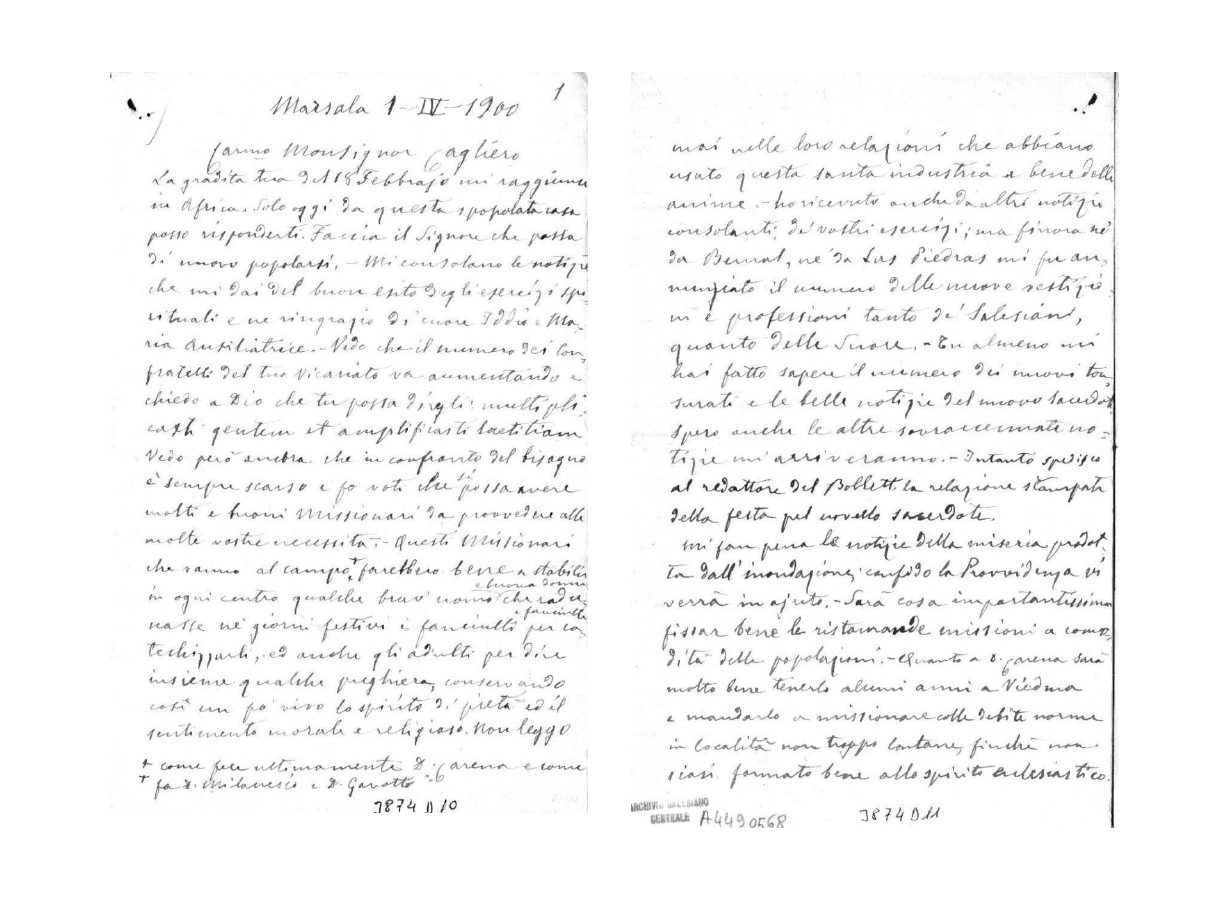 1
Marsala 1-IV-1900
Carmo Monsignor Cagliero
La gradita tua del 18 Febbrajo mi raggiunse
in Africa. Solo oggi da questa spopolata casa
posso risponderti. Faccia il Signore che possa
di nuovo popolarsi. - Mi consolano le notizie
che mi dai del buon esito degli esercizi spi-
rituali e ne ringrazio di cuore Iddio e Ma-
ria Ausiliatrice. - Vedo che il numero dei Con-
fratelli del tuo Vicariato va aumentando e
chiedo a Dio che tu possa dirgli: multipli-
casti gentem et amplificasti laetitiam
Vedo però ancora che in confronto del bisogno
è sempre scarso e fo voti che si possa avere
molti e buoni Missionari da provvedere alle
molte vostre necessità. - Questi Missionari
che vanno al campo, + farebbero bene a stabilir
e buona donna
in ogni centro qualche brav' uomo che radu-
e fanciulle
nasse ne' giorni festivi i fanciulli per ca-
techizzarli, ed anche gli adulti per dire
insieme qualche preghiera, conservando
così un po' vivo lo spirito di pietà ed il
sentimento morale e religioso. Non leggo
+ come fece ultimamente D. Carena e come
+ fa D. Milanesio e D. Gavotto
3874 D 10
mai nelle loro relazioni che abbiano
usato questa santa industria a bene delle
anime. - ho ricevuto anche da altri notizie
consolanti de' vostri esercizi; ma finora nè
da Bernal, nè da Las Piedras mi fu an-
nunziato il numero delle nuove vestizio-
ni e professioni tanto de' Salesiani,
quanto delle Suore. - Tu almeno mi
hai fatto sapere il numero dei nuovi ton-
surati e le belle notizie del nuovo sacerdote
spero anche le altre sovraccennate no-
tizie mi arriveranno. - Intanto spedisco
al redattore del Bollett. la relazione stampata
della festa pel novello sacerdote.
Mi fan pena le notizie della miseria prodot-
ta dall' inondazione; confido la Provvidenza vi
verrà in ajuto. - Sarà cosa importantissima
fissar bene le missioni a como-
dità delle popolazioni. - Quanto a D. Carena sarà
molto bene tenerlo alcuni anni a Viedma
e mandarlo a missionare colle debite norme
in località non troppo lontane, finchè non
siasi formato bene allo spirito ecclesiastico.
ARCHIVIO SALESIANO
CENTRALE A4490568
3874 D 11